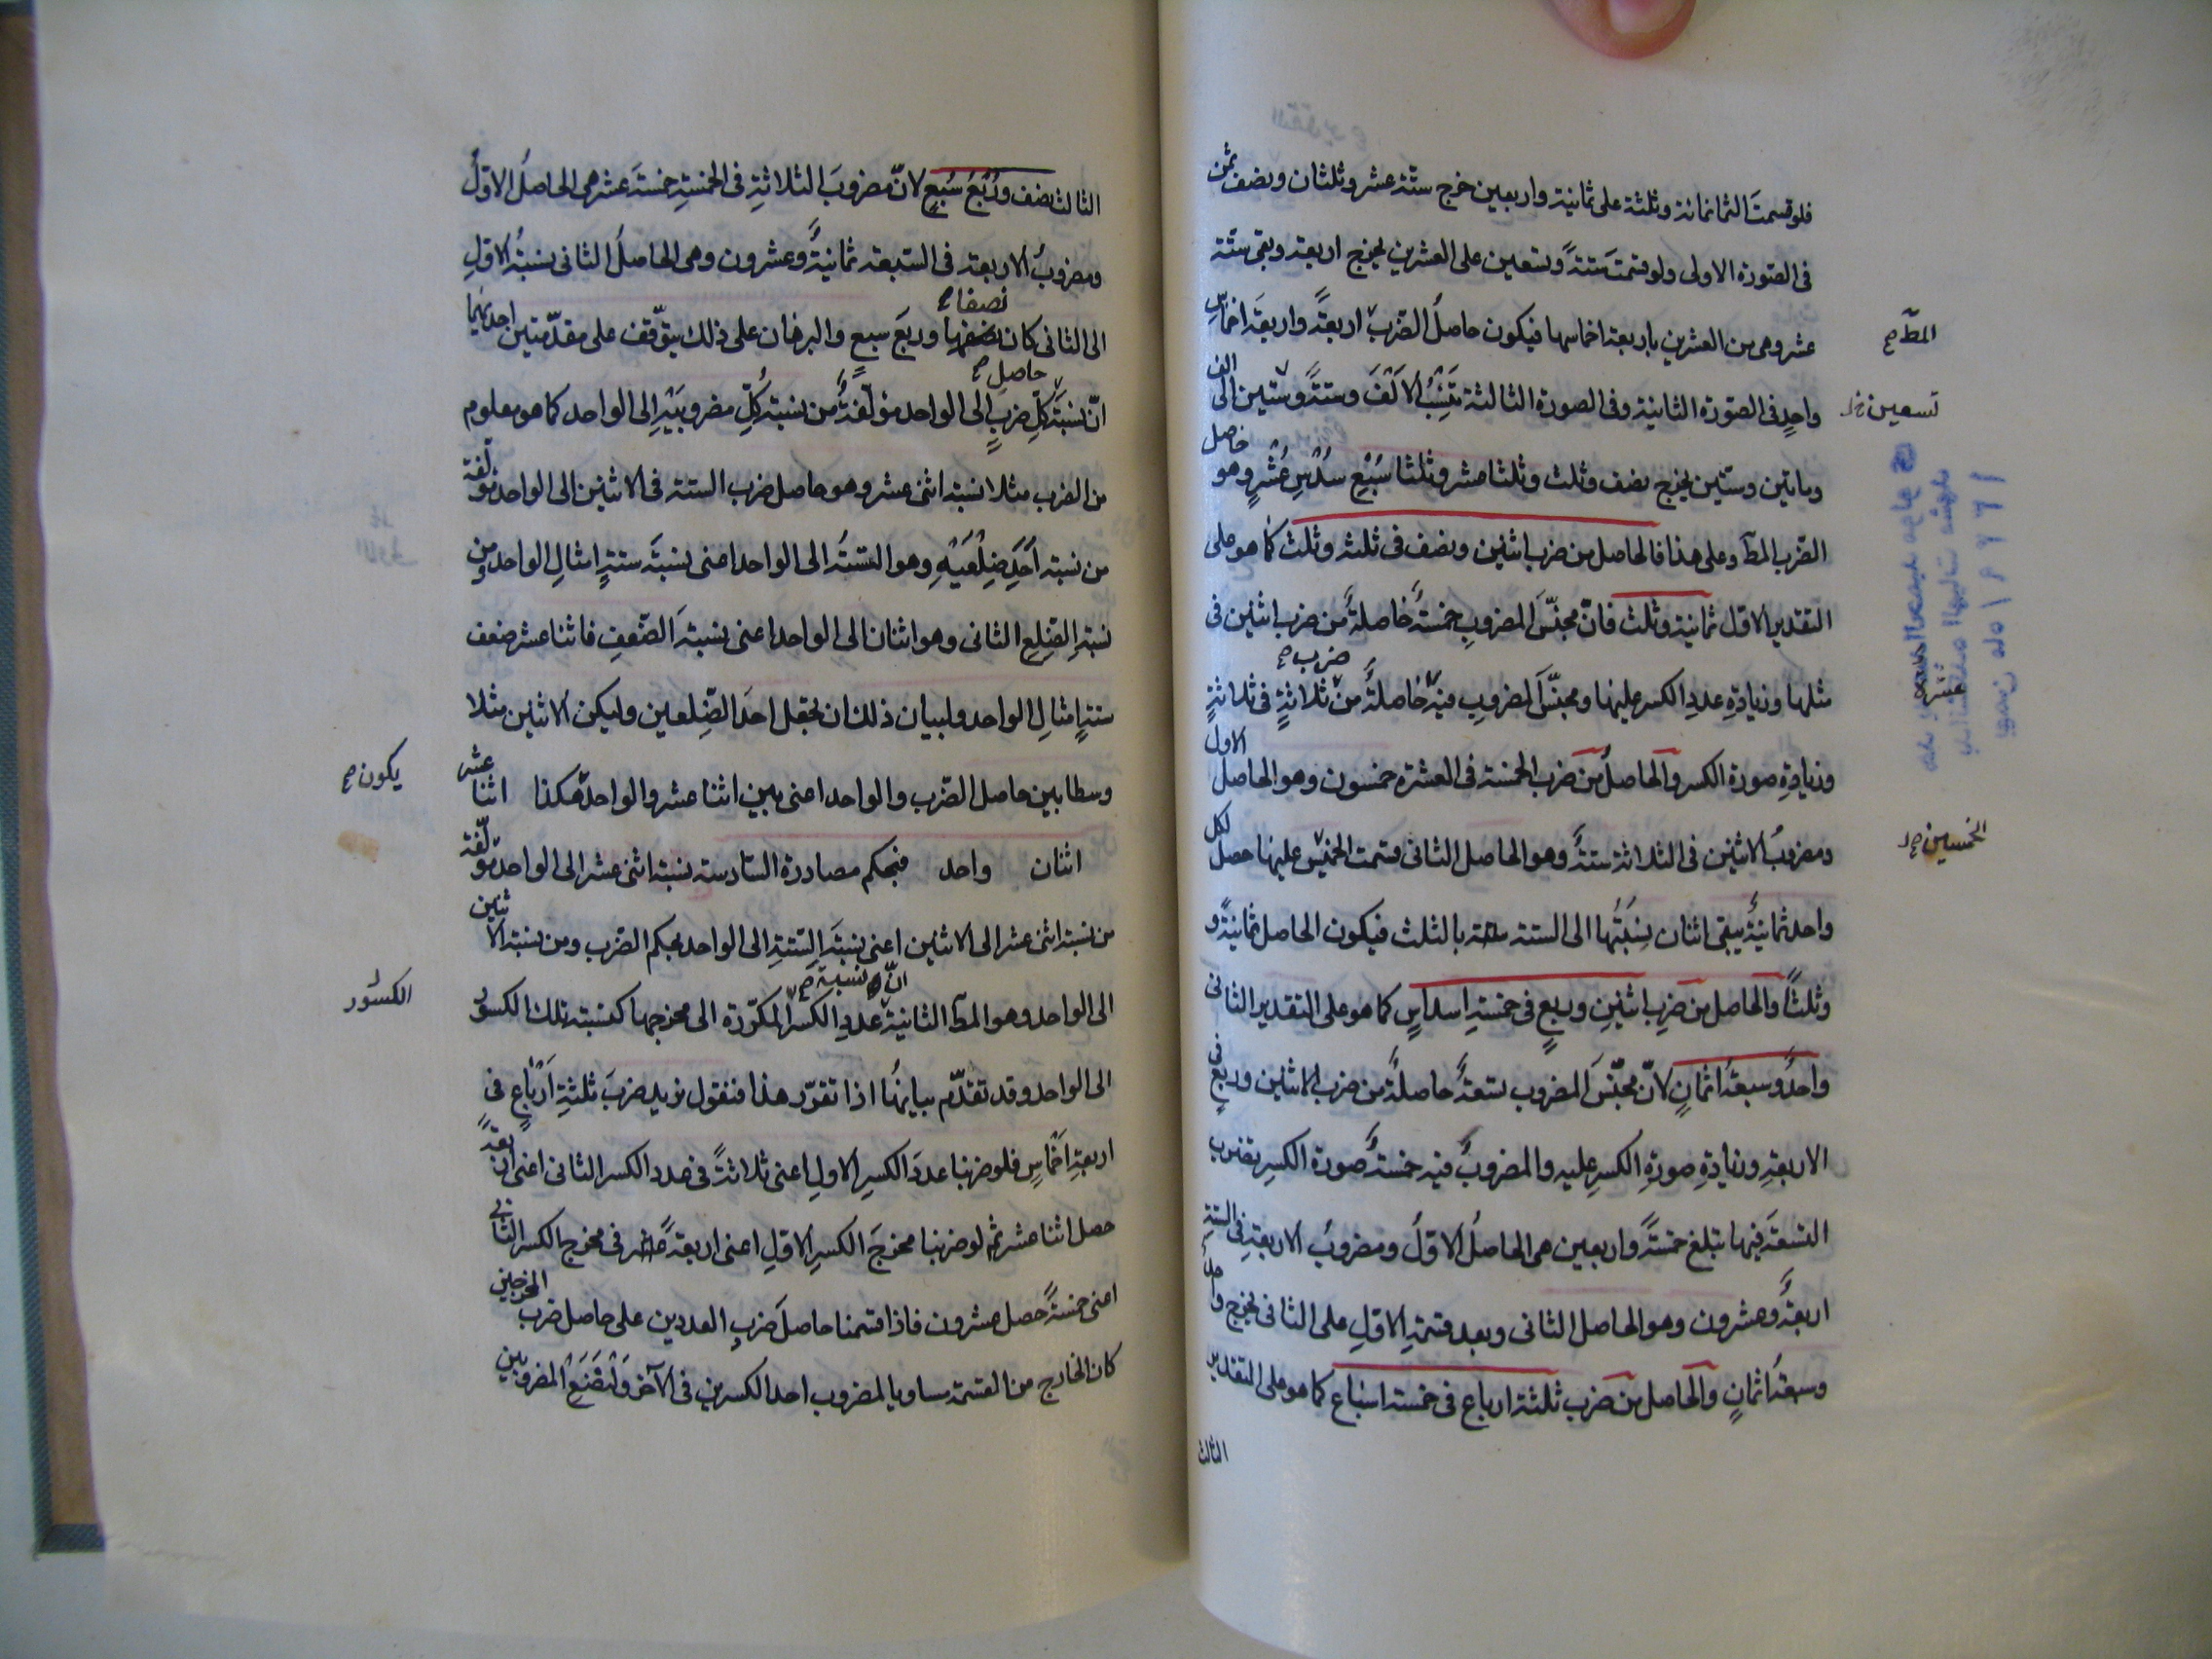 فلو قسمتَ الثمانمائة وثلثة على ثمانية واربعين خرج ستّة عشر وثلثان ونصف ثمن
فى الصّورة الاولى ولو قسمتَ ستةً وتسعين على العشرين يخرج اربعة وبقى ستّة
عشر وهى من العشرين باربعة اخماسها فيكون حاصلُ الضّرب اربعةً واربعةَ اخماسِ
المطّ صح
واحدٍ فى الصّورة الثانية وفى الصورة الثالثة تَنْسِبُ الاَلْفَ وستةً وستّين الى الف
تسعين خ
ومايتين وستّين يخرج نصف وثلث وثلثا عشر وثلثا سُبْعِ سُدْسِ عُشْرٍ وهو حاصل
الضّرب المطّ وعلى هذا فالحاصل من ضرب اثنين ونصف فى ثلثه وثلث كما هو على
التقدير الاول ثمانية وثلث فانّ مجنّسَ المضروبِ خمسةٌ حاصلةٌ من ضرب اثنين فى
مثلها وزيادةِ عددِ الكسر عليها ومجنّسَ المضروبِ فيه حاصلةٌ من ضرب صح ثلاثةٍ فى ثلاثةٍ
وزيادةِ صورة الكسر والحاصلُ من ضرب الخمسة فى العشرة خمسون وهو الحاصل الاول
ومضروبُ الاثنين فى الثلاثة ستةٌ وهو الحاصل الثانى قسمت الخمس عليها حصل لكل
الخمسين صح
واحد ثمانيةٌ يبقى اثنان نِسْبَتُها الى الستة بالثلث فيكون الحاصل ثمانيةً و
وثلثاً والحاصل من ضربِ اثنينِ وربعٍ فى خمسةِ اسداسٍ كما هو على التقدير الثانى
واحدٌ وسبعةُ اثمانٍ لانّ مجنّسَ المضروب تسعةٌ حاصلةٌ من ضرب الاثنين وربعٍ فى
الاربعةِ وزيادةِ صورةِ الكسرِ عليه والمضروبُ فيه خمسةٌ صورة الكسر تضرب
التسعةَ فيها تبلغ خمسةً واربعين هى الحاصلُ الاوّلُ ومضروبُ الاربعةِ فى الستةِ
اربعةٌ وعشرون وهو الحاصل الثانى وبعد قسمةِ الاوّلِ على الثانى يخرج واحد
وسبعةُ اثمانٍ والحاصل من ضرب ثلثة ارباع فى خمسة اسباع كما هو على التقدير
الثالث
الثالث نصف ورُبْعُ سُبْعٍ لانّ مضروبَ الثلاثةِ فى الخمسةِ خمسةَ عشر هى الحاصلُ الاوّلُ
ومضروبُ الاربعة فى السّبعة ثمانيةٌ وعشرون وهى الحاصلُ الثانى نسبةُ الاوّلِ
نصفا صح
الى الثانى كان نصفها وربعَ سبعٍ والبرهان على ذلك يتوّقف على مقدّمتين احديهما
حاصل صح
انّ نسبةَ كلِّ ضربٍ الى الواحد مؤلّفةٌ من نسبة كُلِّ مضروبَيْهِ الى الواحد كما هو معلوم
من الضرب مثلا نسبة اثنى عشر وهو حاصل ضرب الستة فى الاثنين الى الواحد مؤلّفة
من نسبة اَحَدِ ضِلْعَيْهِ وهو الستةُ الى الواحد اعنى نسبةَ ستةِ امثالِ الواحد ومن
نسبةِ الضّلع الثانى وهو اثنان الى الواحد اعنى نسبةَ الضّعفِ فاثنا عشر ضعف
ستةِ امثالِ الواحد ولبيان ذلك ان نجعل احدَ الضّلعين وليكن الاثنين مثلا
وسطا بين حاصل الضّرب والواحد اعنى بين اثنا عشر والواحد هكذا اثنا عشر
يكون صح
اثنان واحد فبحكم مصادرة السّادسة نسبة اثنى عشر الى الواحد مؤلّفة
من نسبة اثنى عشر الى الاثنين اعنى نسبةَ الستةِ الى الواحد بحكم الضّرب ومن نسبة الاثنين
انّ نسبة صح
الى الواحد وهو المطّ الثانية عددِ الكسر المكرّرة الى مخرجها كنسبة تلك الكسور
الكسُور
الى الواحد وقد تقدّم بيانُها اذا تقرّر هذا فنقول نريد ضربَ ثلثةِ اَرْباعٍ فى
اربعةِ اَخْماسٍ فلو ضربنا عددَ الكسرِ الاولِ اعنى ثلاثةً فى عدد الكسر الثانى اعنى اربعةً
حصل اثنا عشر ثم لو ضربنا مخرجَ الكسرِ الاوّلِ اعنى اربعةً فى مخرج الكسر الثانى
اعنى خمسةً حصل عشرون فاذا قسمنا حاصلَ ضربِ العددين على حاصل ضرب المخرجين
كان الخارج من القسمة مساويا لمضروب احد الكسرين فى الآخر وَلْنَضَع المضروبين